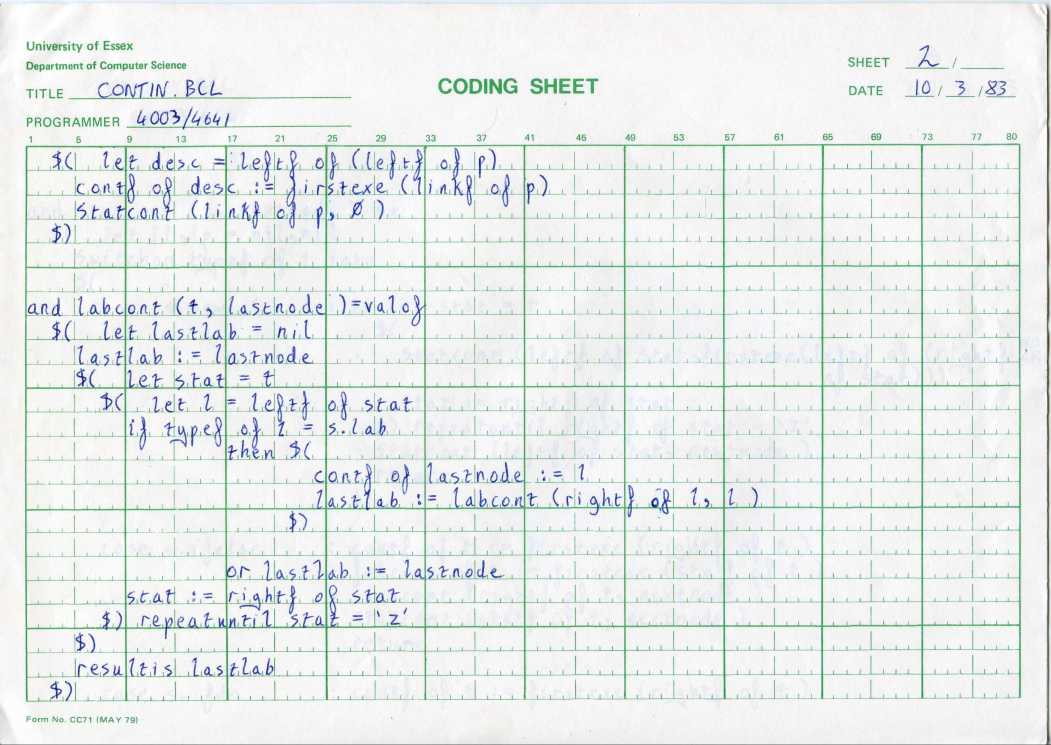 University of Essex
Department of Computer Science
TITLE CONTIN.BCL
PROGRAMMER 4003/4641
CODING SHEET
SHEET 2 /
DATE 10 / 3 / 83
1 5 9 13 17 21 25 29 33 37 41 45 49 53 57 61 65 69 73 77 80
$( let desc = leftf of (leftf of p)
contf of desc := firstexe (linkf of p)
statcont (linkf of p, Ø )
$)
and labcont (t, lastnode )=valof
$( let lastlab = nil
lastlab := lastnode
$( let stat = t
$( let l = leftf of stat
if typef of l = s.lab
then $(
contf of lastnode := l
lastlab := labcont (rightf of l, l )
$)
or lastlab := lastnode
stat := rightf of stat
$) repeatuntil stat = 'z'
$)
resultis lastlab
$)
Form No. CC71 (MAY 79)